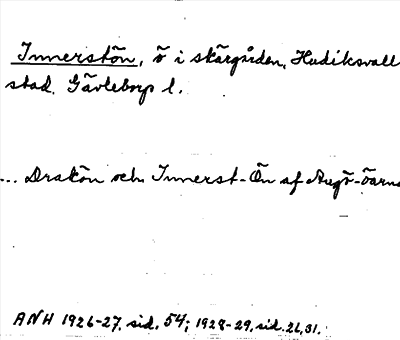 Innerstön, ö i skärgården, Hudiksvall
stad, Gävleborgs l.
... Drakön och Innerst-Ön af Agö-öarna
ANH 1926-27, sid. 54; 1928-29, sid. 26, 31.